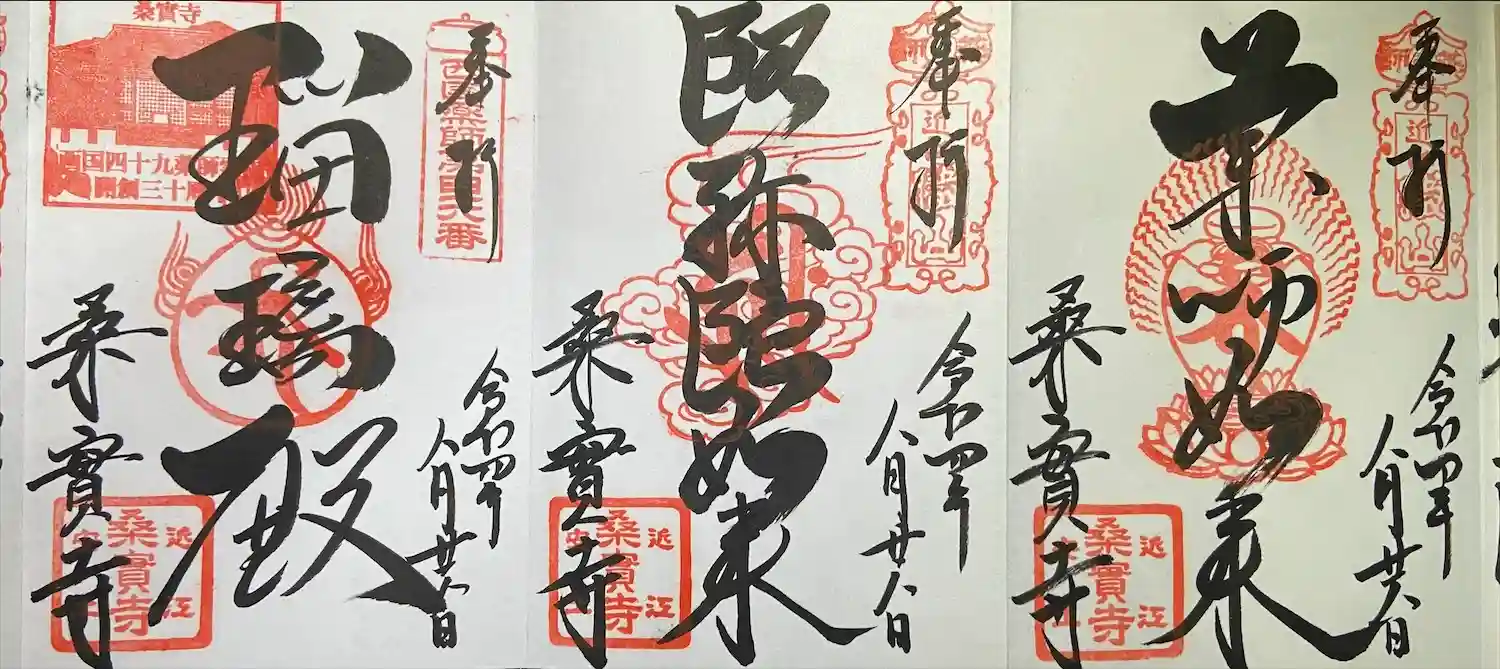 奉拝
薬師如来
令和四年
八月廿八日
桑實寺
近江
桑實寺
奉拝
阿弥陀如来
令和四年
八月廿八日
桑實寺
近江
桑實寺
奉拝
西国薬師第四十六番
瑠璃殿
令和四年
八月廿八日
桑實寺
桑實寺
西国四十九薬師
開創三十周
近江
桑實寺